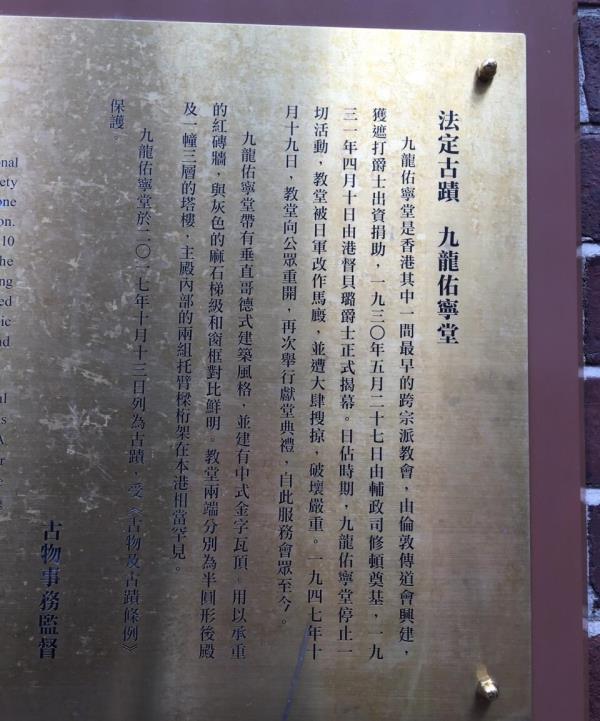 法定古蹟　九龍佑寧堂
九龍佑寧堂是香港其中一間最早的跨宗派教會，由倫敦傳道會興建，
獲遮打爵士出資捐助，一九三〇年五月二十七日由輔政司修頓奠基，一九
三一年四月十日由港督貝璐爵士正式揭幕。日佔時期，九龍佑寧堂停止一
切活動，教堂被日軍改作馬廄，並遭大肆搜掠，破壞嚴重。一九四七年十
月十九日，教堂向公眾重開，再次舉行獻堂典禮，自此服務會眾至今。
九龍佑寧堂帶有垂直哥德式建築風格，並建有中式金字瓦頂。用以承重
的紅磚牆，與灰色的麻石梯級和窗框對比鮮明。教堂兩端分別為半圓形後殿
及一幢三層的塔樓，主殿內部的兩組托臂樑桁架在本港相當罕見。
九龍佑寧堂於二〇一七年十月十三日列為古蹟，受《古物及古蹟條例》
保護
古物事務監督